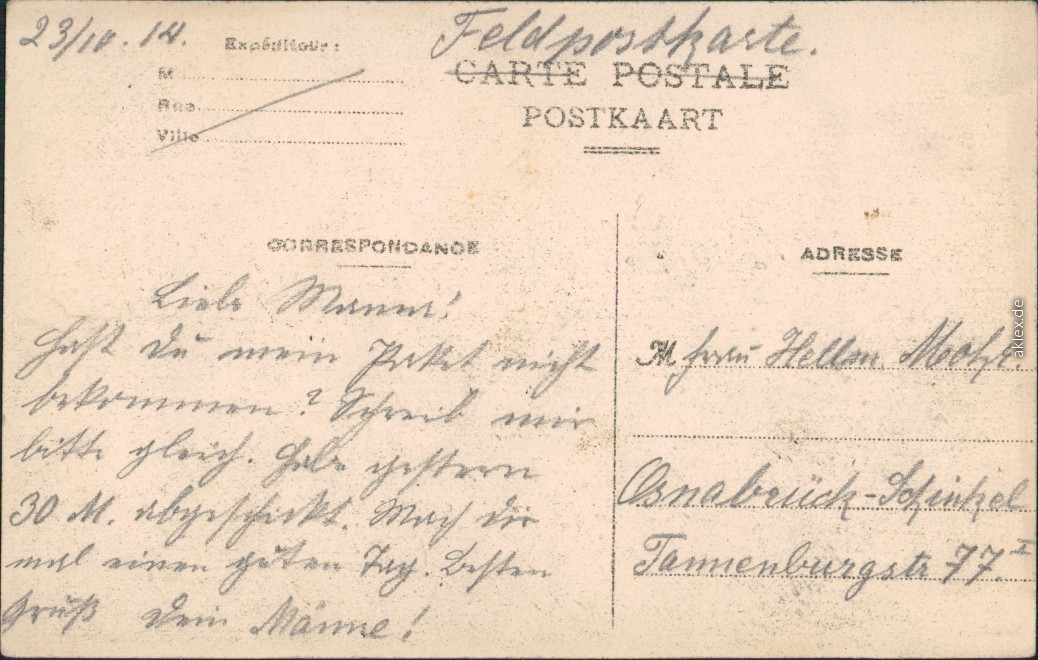 23/10.14.
Feldpostkarte.
Expéditeur:
M
Rue
Ville
CARTE POSTALE
POSTKAART
CORRESPONDANCE
ADRESSE
Liebe Mamma!
Hast Du mein Paket nicht
bekommen? Schreib mir
bitte gleich. Habe gestern
30 M. abgeschickt. Mach dir
mal einen guten Tag. Besten
Gruß Dein Männe!
M Frau Hellm. Mohr.
Osnabrück-Schinkel
Tannenburgstr 77 I
aklex.de